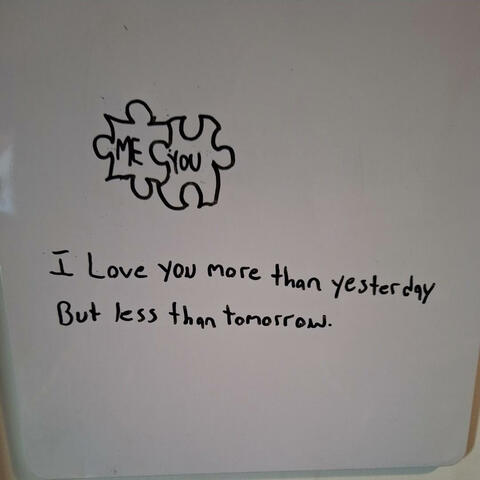 ME YOU
I Love you more than yesterday
But less than tomorrow.